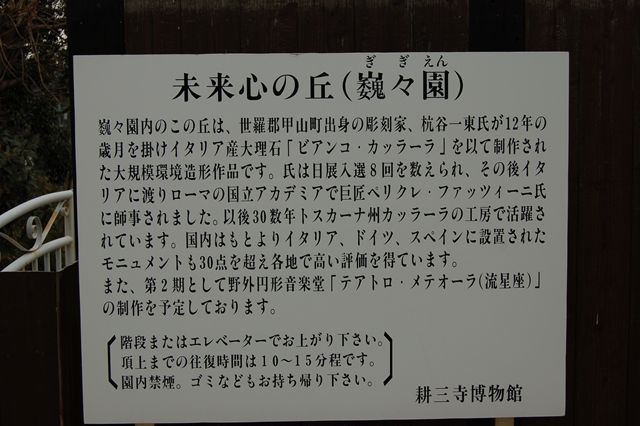 ぎぎえん
未来心の丘(巍々園)
巍々園内のこの丘は、世羅郡甲山町出身の彫刻家、杭谷一東氏が12年の
歳月を掛けイタリア産大理石「ビアンコ・カッラーラ」を以て制作され
た大規模環境造形作品です。氏は日展入選8回を数えられ、その後イタ
リアに渡りローマの国立アカデミアで巨匠ペリクレ・ファッツィーニ氏
に師事されました。以後30数年トスカーナ州カッラーラの工房で活躍さ
れています。国内はもとよりイタリア、ドイツ、スペインに設置された
モニュメントも30点を超え各地で高い評価を得ています。
また、第2期として野外円形音楽堂「テアトロ・メテオーラ(流星座)」
の制作を予定しております。
階段またはエレベーターでお上がり下さい。
頂上までの往復時間は10〜15分程です。
園内禁煙。ゴミなどもお持ち帰り下さい。
耕三寺博物館